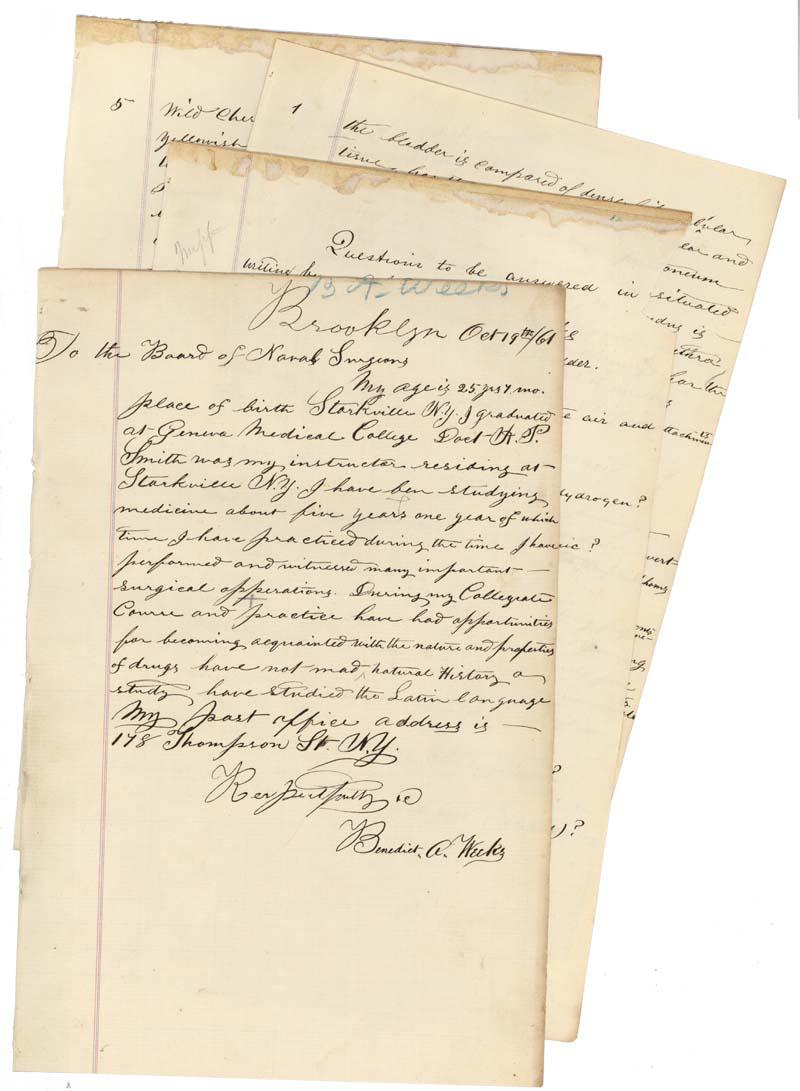 5 Wild Cher
yellowish
1 the bladder is compared of dense
tissue
lar and
Questions to be answered in
situated
writing
B A Weeks
Brooklyn Oct 19th/61
To the Board of Naval Surgeons
My age is 25 yrs 7 mo.
place of birth Starkville N.Y. I graduated
at Geneva Medical College Doct
Smith was my instructor residing at
Starkville N.Y. I have ben studying
medicine about five years one year of which
time I have practiced during the time I have
performed and witnessed many important
surgical opperations. During my Collegiate
Course and practice have had opportunities
for becoming acquainted with the nature and properties
of drugs have not mad natural History a
study have studied the Latin language
My post office address is
178 Thompson St. N.Y.
Respectfully &c
Benedict. A. Weeks
is
thra
dder.
for the
air and
hydrogen?
ic?
vert